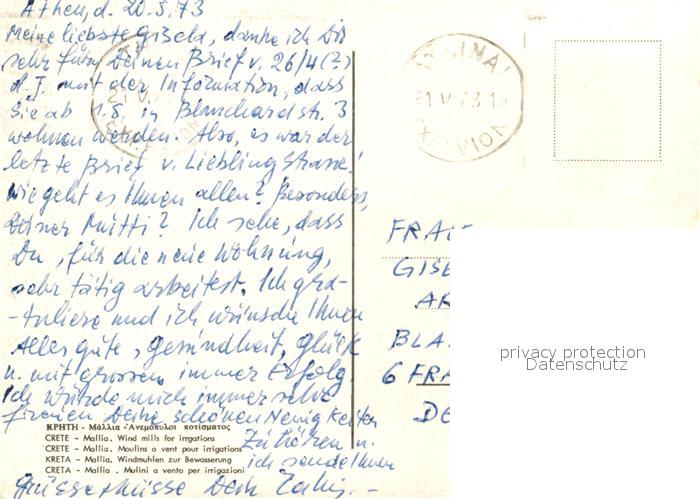 Athen, d. 20.5.73
Meine liebste Gisela, danke ich Dir
sehr für Deinen Brief v. 26/4 (2)
d.J. mit der Information, dass
Sie ab 1.5. in Blanchardstr. 3
wohnen werden. Also, es war der
letzte Brief v. Liebling Strasse!
Wie geht es Ihnen allen? Besonders,
Deiner Mutti? Ich sehe, dass
Du, für die neue Wohnung,
sehr tätig arbeitest. Ich gra-
-tuliere und ich wünsche Ihnen
Alles gute, gesundheit, glück
u. mit grossen immer Erfolg.
Ich würde mich immer sehr
freuen Deine schönen Neuigkeiten
zu hören u.
ich sende Ihnen
Grüsse Küsse Dein
ΚΡΗΤΗ - Μάλλια - Ἀνεμόμυλοι ποτίσματος
CRETE - Mallia. Wind mills for irrgations
CRETE - Mallia. Moulins a vent pour irrigations
KRETA - Mallia. Windmuhlen zur Bewasserung
CRETA - Mallia. Mulini a vento per irrigazioni
21 V 73 15
FRAU
GISE
AR
BLA
6 FRA
DE
privacy protection
Datenschutz